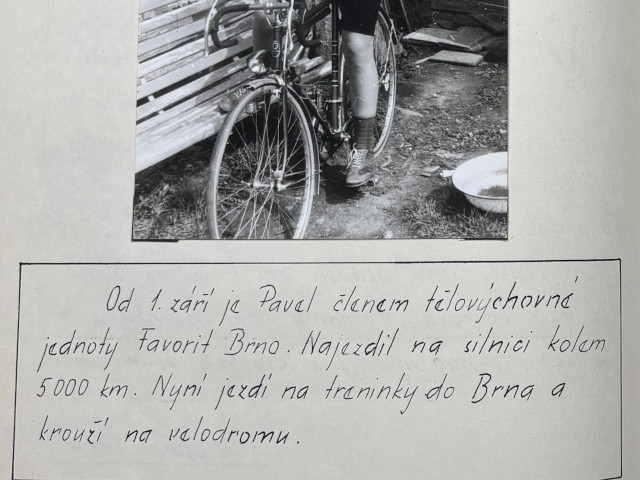 Od 1. září je Pavel členem tělovýchovné
jednoty Favorit Brno. Najezdil na silnici kolem
5000 km. Nyní jezdí na treninky do Brna a
krouží na velodromu.